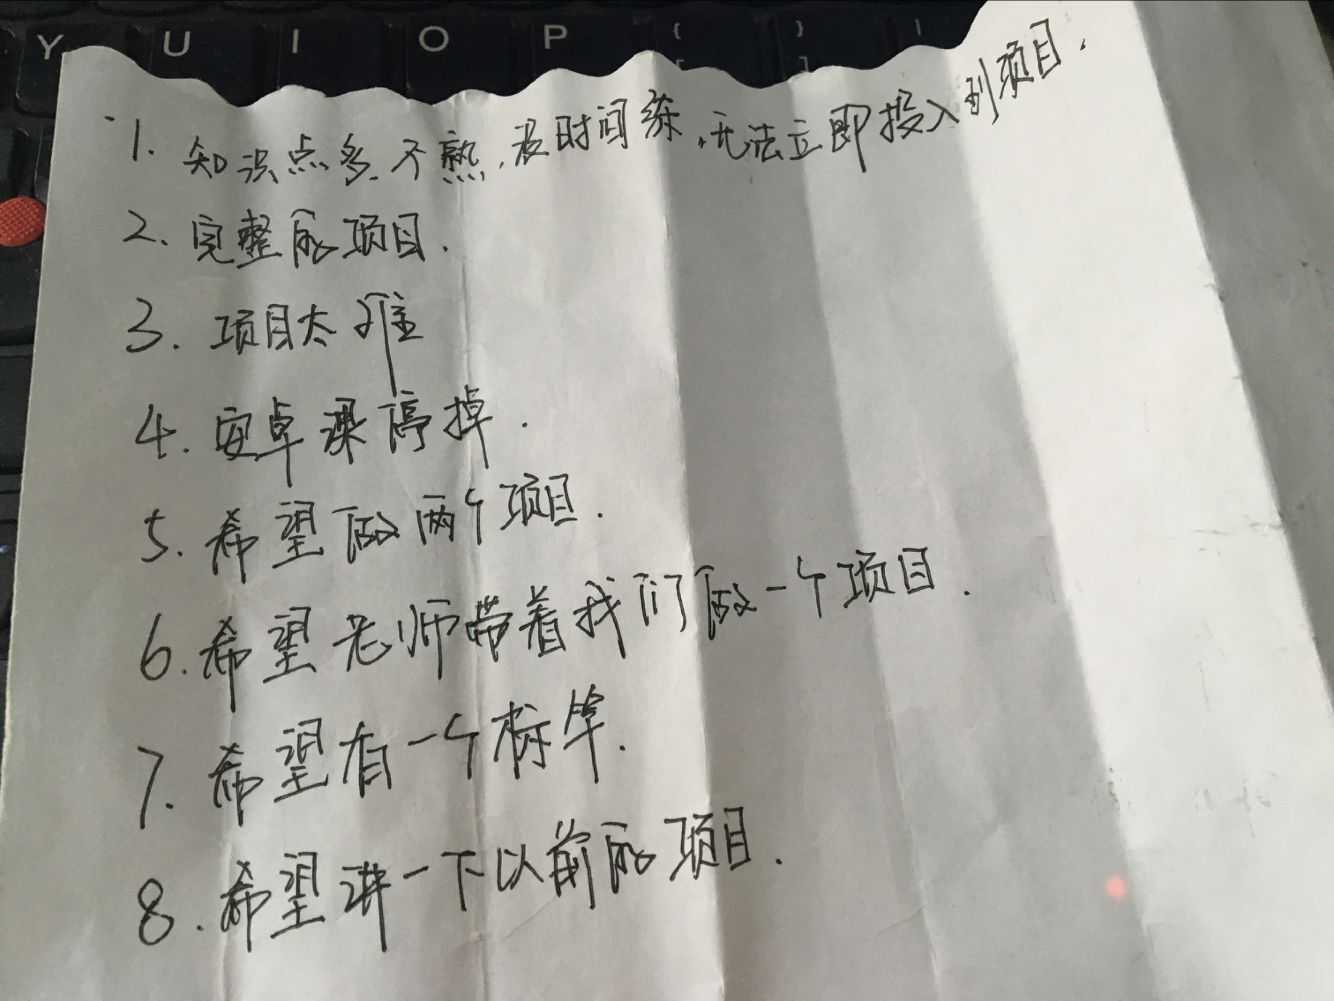 Y U I O P { }
[ ]
1. 知识点多、不熟，没时间练，无法立即投入到项目.
2. 完整的项目.
3. 项目太难
4. 安卓课停掉.
5. 希望做两个项目.
6. 希望老师带着我们做一个项目.
7. 希望有一个标竿.
8. 希望讲一下以前的项目.